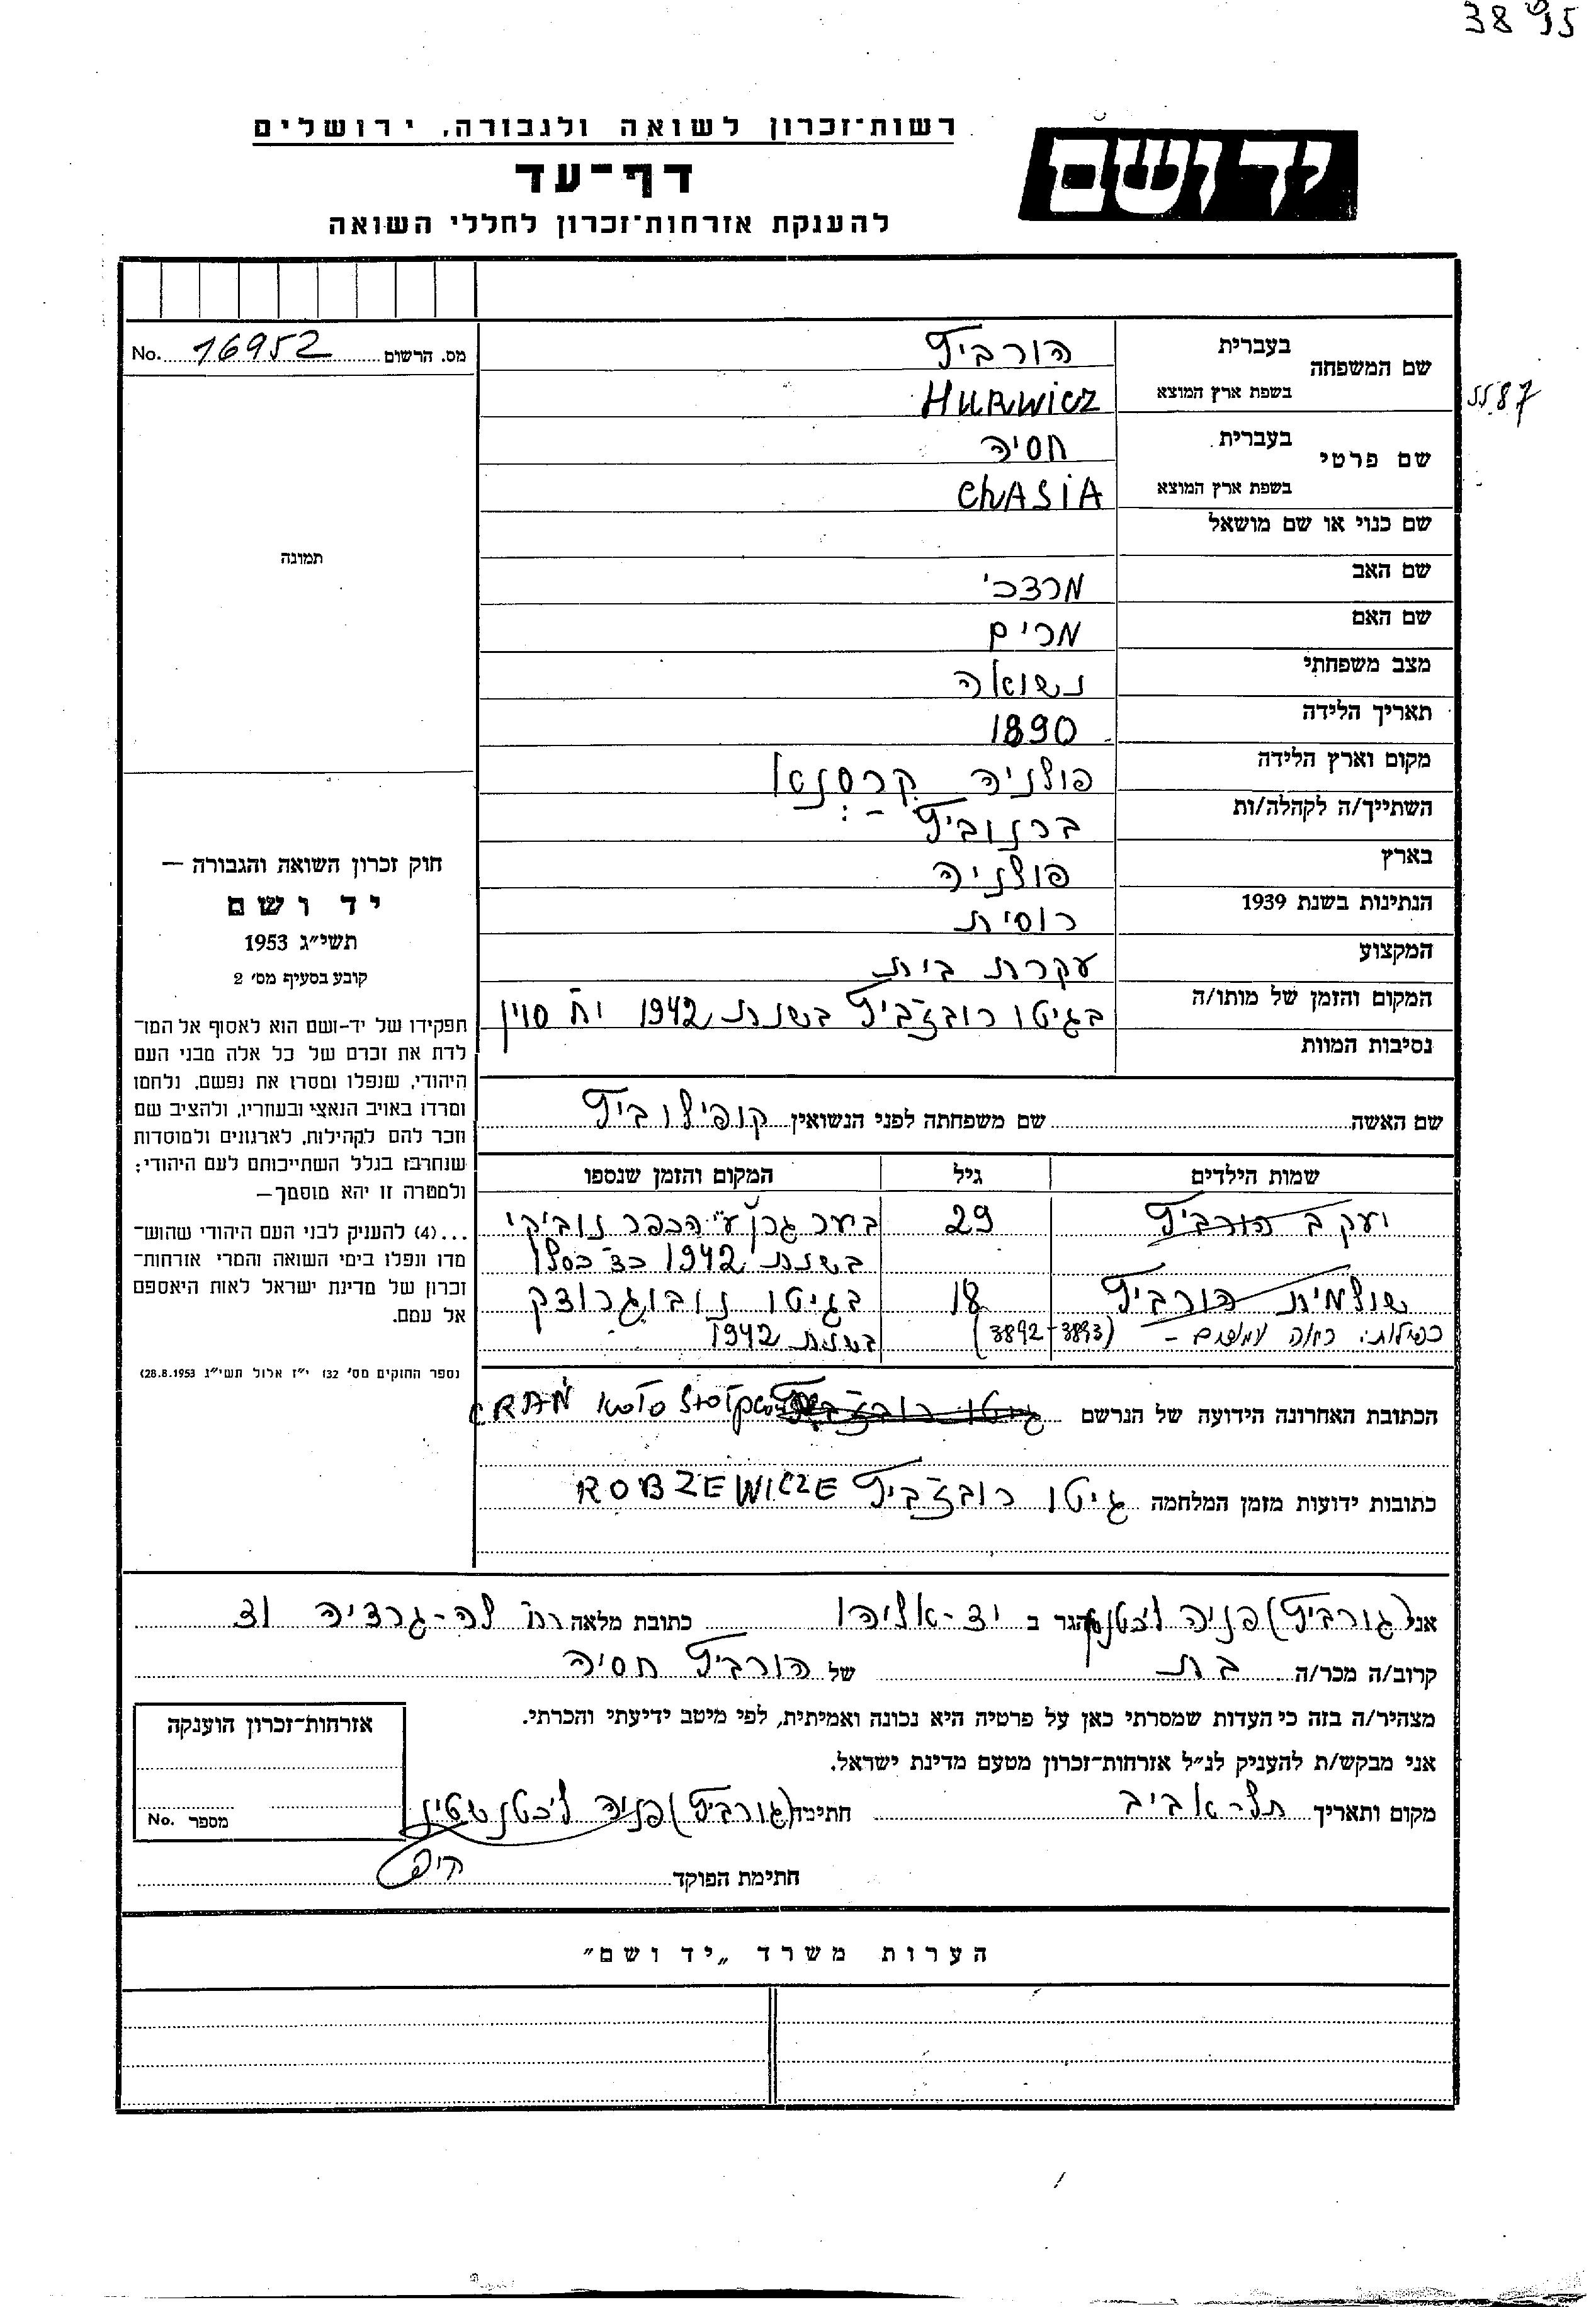 3895
רשות־זכרון לשואה ולגבורה, ירושלים
יד ושם
דף־עד
להענקת אזרחות־זכרון לחללי השואה
מס. הרשום 16952 No.
שם המשפחה בעברית הורביץ
בשפת ארץ המוצא HURWICZ
5587
שם פרטי בעברית חסיה
בשפת ארץ המוצא ChASiA
שם כנוי או שם מושאל
תמונה
שם האב מרדכי
שם האם מרים
מצב משפחתי נשואה
תאריך הלידה 1890
מקום וארץ הלידה פולניה
השתייך/ה לקהלה/ות ברנוביץ
בארץ פולניה
הנתינות בשנת 1939 רוסית
המקצוע עקרת בית
המקום והזמן של מותו/ה בגיטו רובזביץ בשנת 1942 י״ח סוין
נסיבות המוות
חוק זכרון השואה והגבורה —
יד ושם
תשי״ג 1953
קובע בסעיף מס׳ 2
תפקידו של יד-ושם הוא לאסוף אל המו־
לדת את זכרם של כל אלה מבני העם
היהודי, שנפלו ומסרו את נפשם, נלחמו
ומרדו באויב הנאצי ובעוזריו, ולהציב שם
וזכר להם לקהילות, לארגונים ולמוסדות
שנחרבו בגלל השתייכותם לעם היהודי;
ולמטרה זו יהא מוסמך—
...(4) להעניק לבני העם היהודי שהוש־
מדו ונפלו בימי השואה והמרי אזרחות־
זכרון של מדינת ישראל לאות היאספם
אל עמם.
(ספר החוקים מס׳ 132 י״ז אלול תשי״ג 28.8.1953)
שם האשה שם משפחתה לפני הנשואין קופילוביץ
שמות הילדים גיל המקום והזמן שנספו
יעקב הורביץ 29 ביער ע״י הכפר נוביקי
בשנת 1942 כד כסלו
שולמית הורביץ 18 בגיטו נובוגרודק
כפילות: ראה עמודים - (3892-3893) בשנת 1942
הכתובת האחרונה הידועה של הנרשם גיטו רובזביץ
כתובות ידועות מזמן המלחמה גיטו רובזביץ ROBZEWICZE
אני (גורביץ) פניה הגר ב יד-אליהו כתובת מלאה רח׳ לה-גרדיה
קרוב/ה מכר/ה בת של הורביץ חסיה
מצהיר/ה בזה כי העדות שמסרתי כאן על פרטיה היא נכונה ואמיתית, לפי מיטב ידיעתי והכרתי.
אני מבקש/ת להעניק לנ״ל אזרחות־זכרון מטעם מדינת ישראל.
מקום ותאריך תל-אביב חתימה (גורביץ) פניה ליכטנשטין
חתימת הפוקד
אזרחות־זכרון הוענקה
מספר No.
הערות משרד „יד ושם״